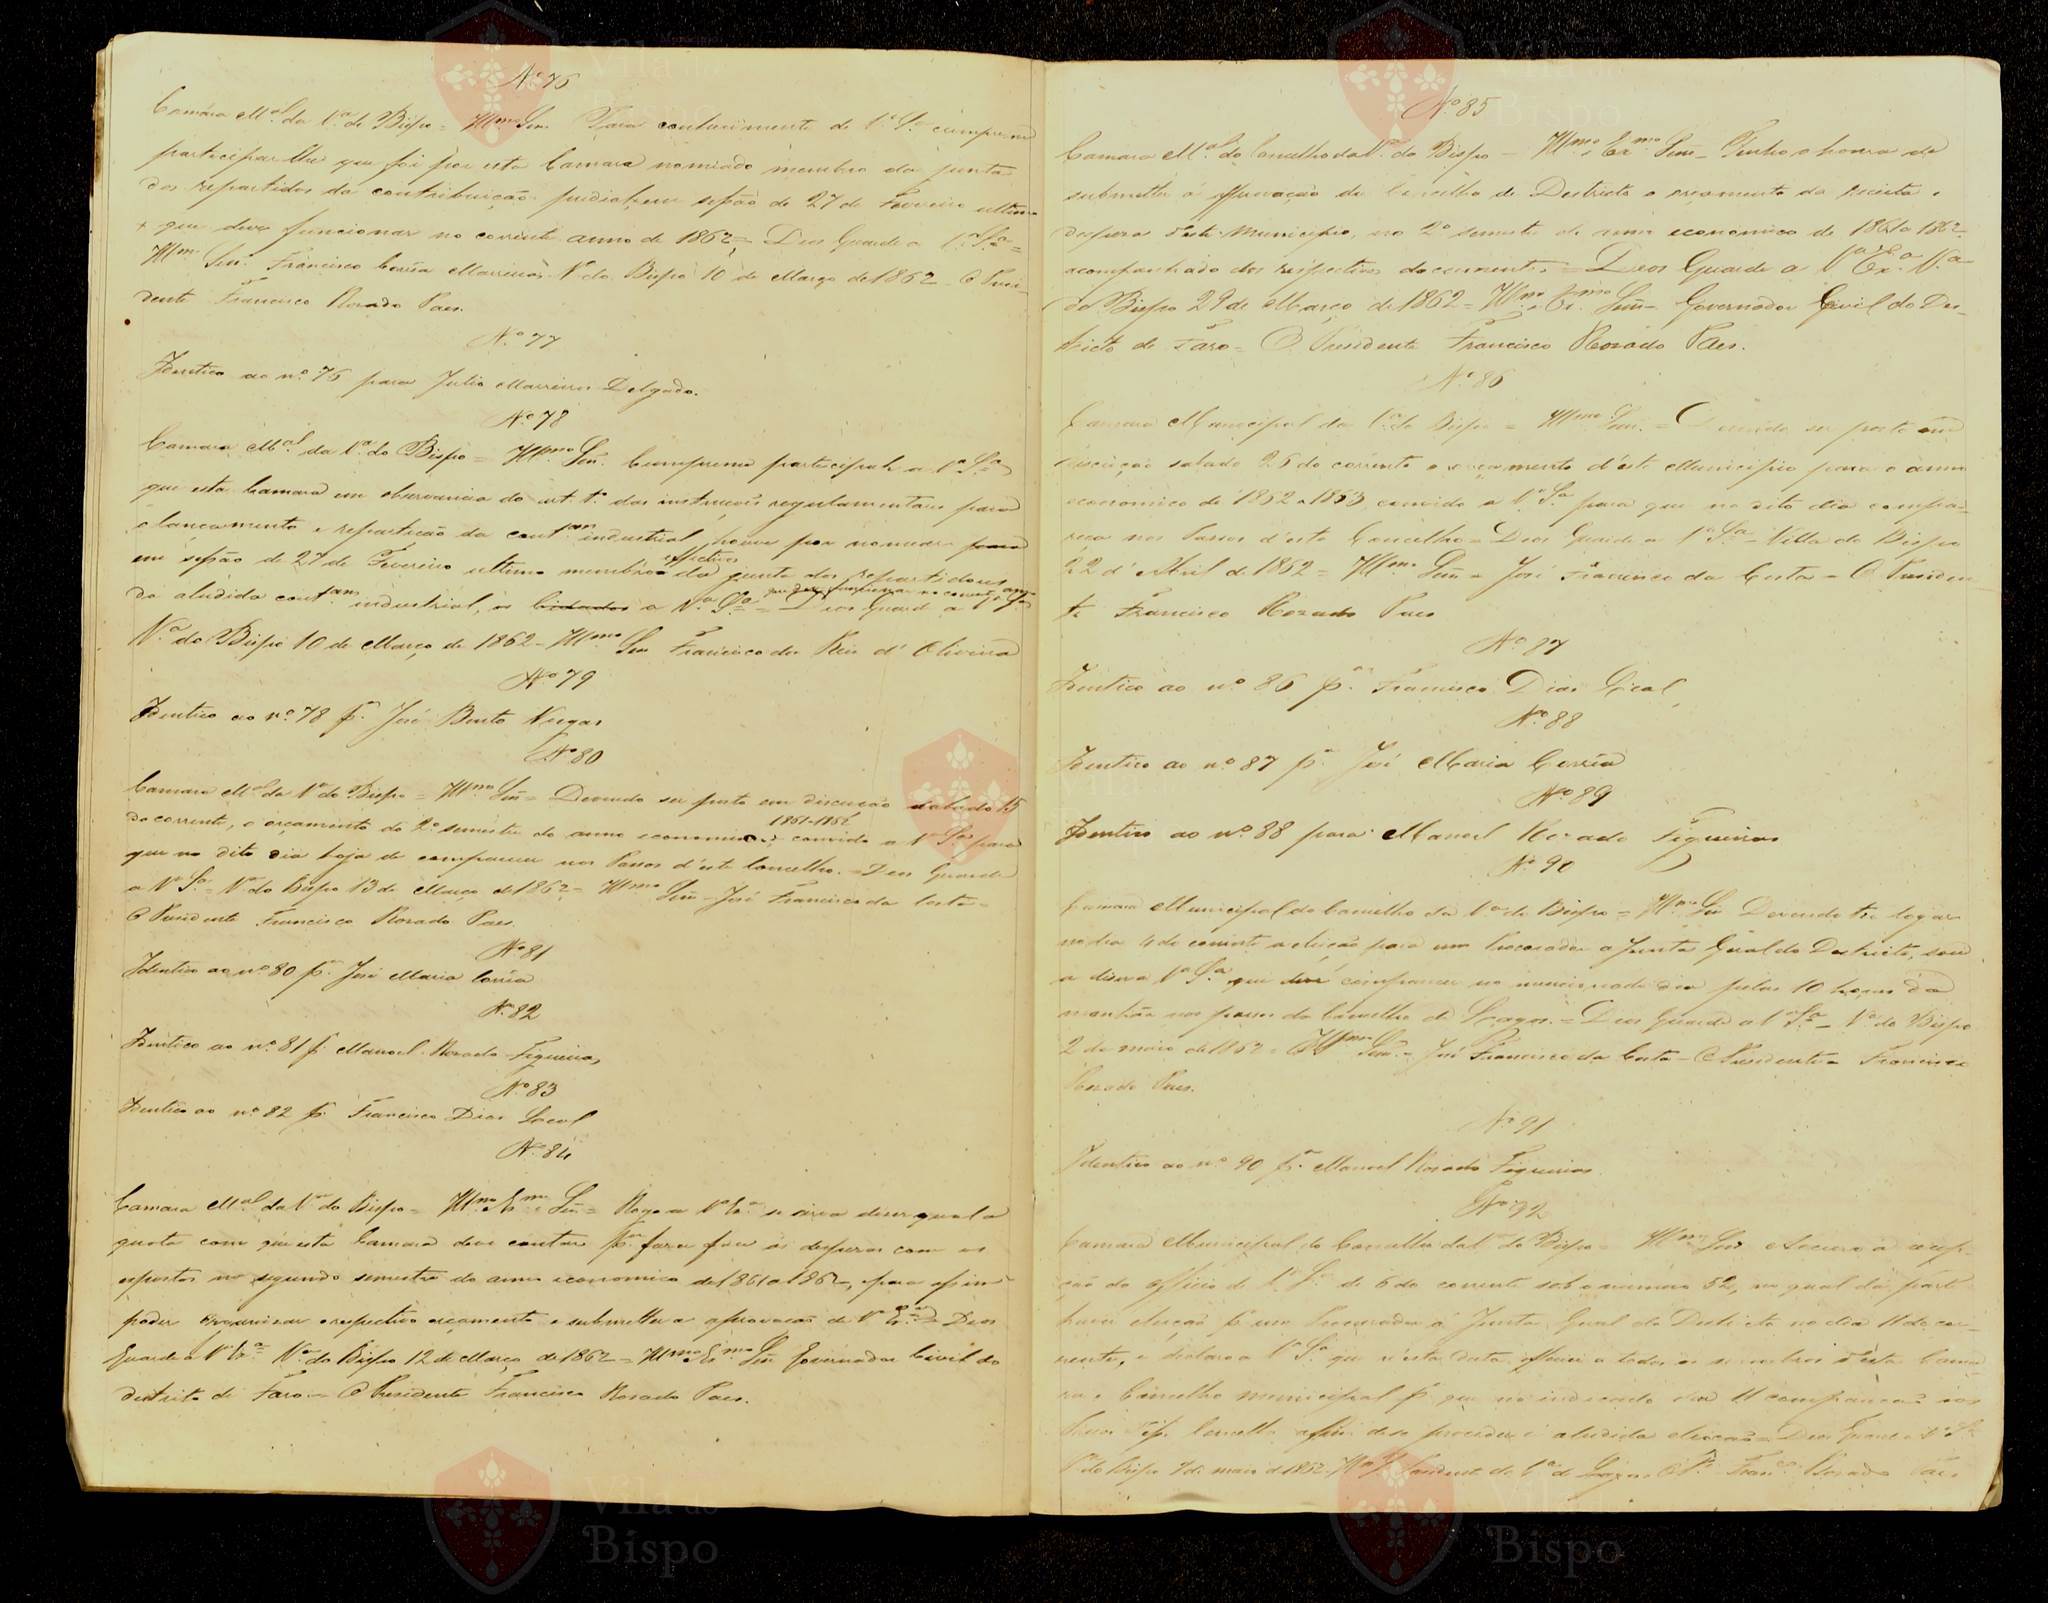 Nº 76
Camara M.al da V.a do Bispo = Ill.mo Snr. Para conhecimento de V.a S.a cumpre-me
participar lhe que foi por esta Camara nomiado membro da junta
dos repartidos da contribuição predial, em sessão de 27 de Fevereiro ultimo
e que deve funcionar no corrente anno de 1862 = Deos Guarde a V.a S.a =
Ill.mo Snr. Francisco Corrêa Marreiros V.a do Bispo 10 de Março de 1862 - O Presi-
dente Francisco Rosado Paes.
Nº 77
Identico ao nº 76 para Julio Marreiros Delgado.
Nº 78
Camara M.al da V.a do Bispo = Ill.mo Snr. Cumpreme participar a V.a S.a
que esta Camara em observancia do art. 1.º das instrucções regulamentares para
o lançamento e repartição da cont.am industrial, houve por nomear para
em sessão de 27 de Fevereiro ultimo membros effectivos da junta dos repartidores
da aludida cont.am industrial, os a V.a S.a que deve funcionar no corrente anno = Deos Guard a V.a S.a
V.a do Bispo 10 de Março de 1862 - Ill.mo Snr Francisco dos Reis d'Oliveira
Nº 79
Identico ao nº 78 p.a José Bento Viegas
Nº 80
Camara M.al da V.a do Bispo = Ill.mo Snr = Devendo ser posto em discução sabado 15
do corrente, o orçamento do 2º semestre do anno economico 1861-1862 convido a V.a S.a para
que no dito dia haja de comparecer nos Passos d'este Concelho. = Deos Guarde
a V.a S.a = V.a do Bispo 13 de Março de 1862 = Ill.mo Snr - José Francisco da Costa =
O Presidente Francisco Rosado Paes.
Nº 81
Identico ao nº 80 p.a José Maria Corrêa
Nº 82
Identico ao nº 81 p.a Manoel Rosado Figueiras,
Nº 83
Identico ao nº 82 p.a Francisco Dias Leal
Nº 84
Camara M.al da V.a do Bispo = Ill.mo Ex.mo Snr = Rogo a V.a Ex.a se sirva dizer qual a
quota com que esta Camara deve contar p.a fazer face ás despezas com os
espostos no segundo semestre do anno economico de 1861 a 1862, para assim
poder organizar o respectivo orçamento e submetter a aprovação de V.a Ex.a = Deos
Guarde a V.a Ex.a V.a do Bispo 12 de Março de 1862 = Ill.mo Ex.mo Snr Governador Civil do
destrito de Faro = O Presidente Francisco Rosado Paes.
Nº 85
Camara M.al do Concelho da V.a do Bispo = Ill.mo e Ex.mo Snr = Tenho a honra de
submetter á approvação do Concelho de Destricto o orçamento da receita e
despeza d'este Municipio, no 2º semestre do anno economico de 1861 a 1862
acompanhado dos respectivos documentos = Deos Guarde a V.a Ex.a V.a
do Bispo 29 de Março de 1862 = Ill.mo e Ex.mo Snr = Governador Civil do Des-
tricto de Faro = O Presidente Francisco Rosado Paes.
Nº 86
Camara Municipal da V.a do Bispo = Ill.mo Snr. = Devendo ser posto em
discução sabado 26 do corrente o orçamento d'este Municipio para o anno
economico de 1862 a 1863, convido a V.a S.a para que no dito dia compa-
reça nos Passos d'este Concelho = Deos Guarde a V.a S.a = Villa do Bispo
22 d'Abril de 1862 = Ill.mo Snr = José Francisco da Costa = O Presiden-
te Francisco Rosado Paes
Nº 87
Identico ao nº 86 p.a Francisco Dias Leal,
Nº 88
Identico ao nº 87 p.a José Maria Corrêa
Nº 89
Identico ao nº 88 para Manoel Rosado Figueiras
Nº 90
Camara Municipal do Concelho da V.a do Bispo = Ill.mo Snr Devendo ter logar
no dia 4 do corrente a eleição para um Procurador a Junta Geral do Destricto, sou
a dizer a V.a S.a que deve comparecer no mencionado dia pelas 10 horas da
manhãa nos passos do Concelho de Lagos. = Deos Guarde a V.a S.a = V.a do Bispo
2 de maio de 1862 = Ill.mo Snr. = José Francisco da Costa = O Presidente = Francisco
Rosado Paes.
Nº 91
Identico ao nº 90 p.a Manoel Rosado Figueiras
Nº 92
Camara Municipal do Concelho da V.a do Bispo = Ill.mo Snr. Accuso a recep-
ção do officio de V.a S.a de 6 do corrente sob o numero 52, no qual dá parte
haver eleição p.a um Procurador á Junta Geral do Destricto no dia 11 do cor-
rente, e declaro a V.a S.a que n'esta data officiei a todos os membros d'esta Cama-
ra e Concelho municipal p.a que no indicado dia 11 compareção nos
Passos Concelho afim de se proceder á aludida eleição = Deos Guarde a V.a S.a
V.a do Bispo 7 de maio de 1862. Presidente da C.a de Lagos O P.e Fran.co Rosado Paes
Vila do
Bispo
Vila do
Bispo